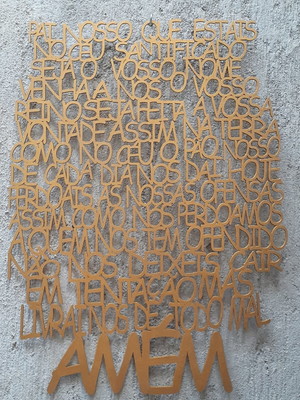 PAI NOSSO QUE ESTAIS
NO CÉU SANTIFICADO
SEJA O VOSSO NOME
VENHA A NÓS O VOSSO
REINO SEJA FEITA A VOSSA
VONTADE ASSIM NA TERRA
COMO NO CÉU O PÃO NOSSO
DE CADA DIA NOS DAÍ HOJE
PERDOAI AS NOSSAS OFENSAS
ASSIM COMO NÓS PERDOAMOS
A QUEM NOS TEM OFENDIDO
NÃO NOS DEIXEIS CAIR
EM TENTAÇÃO MAS
LIVRAI NOS DE TODO MAL
AMÉM